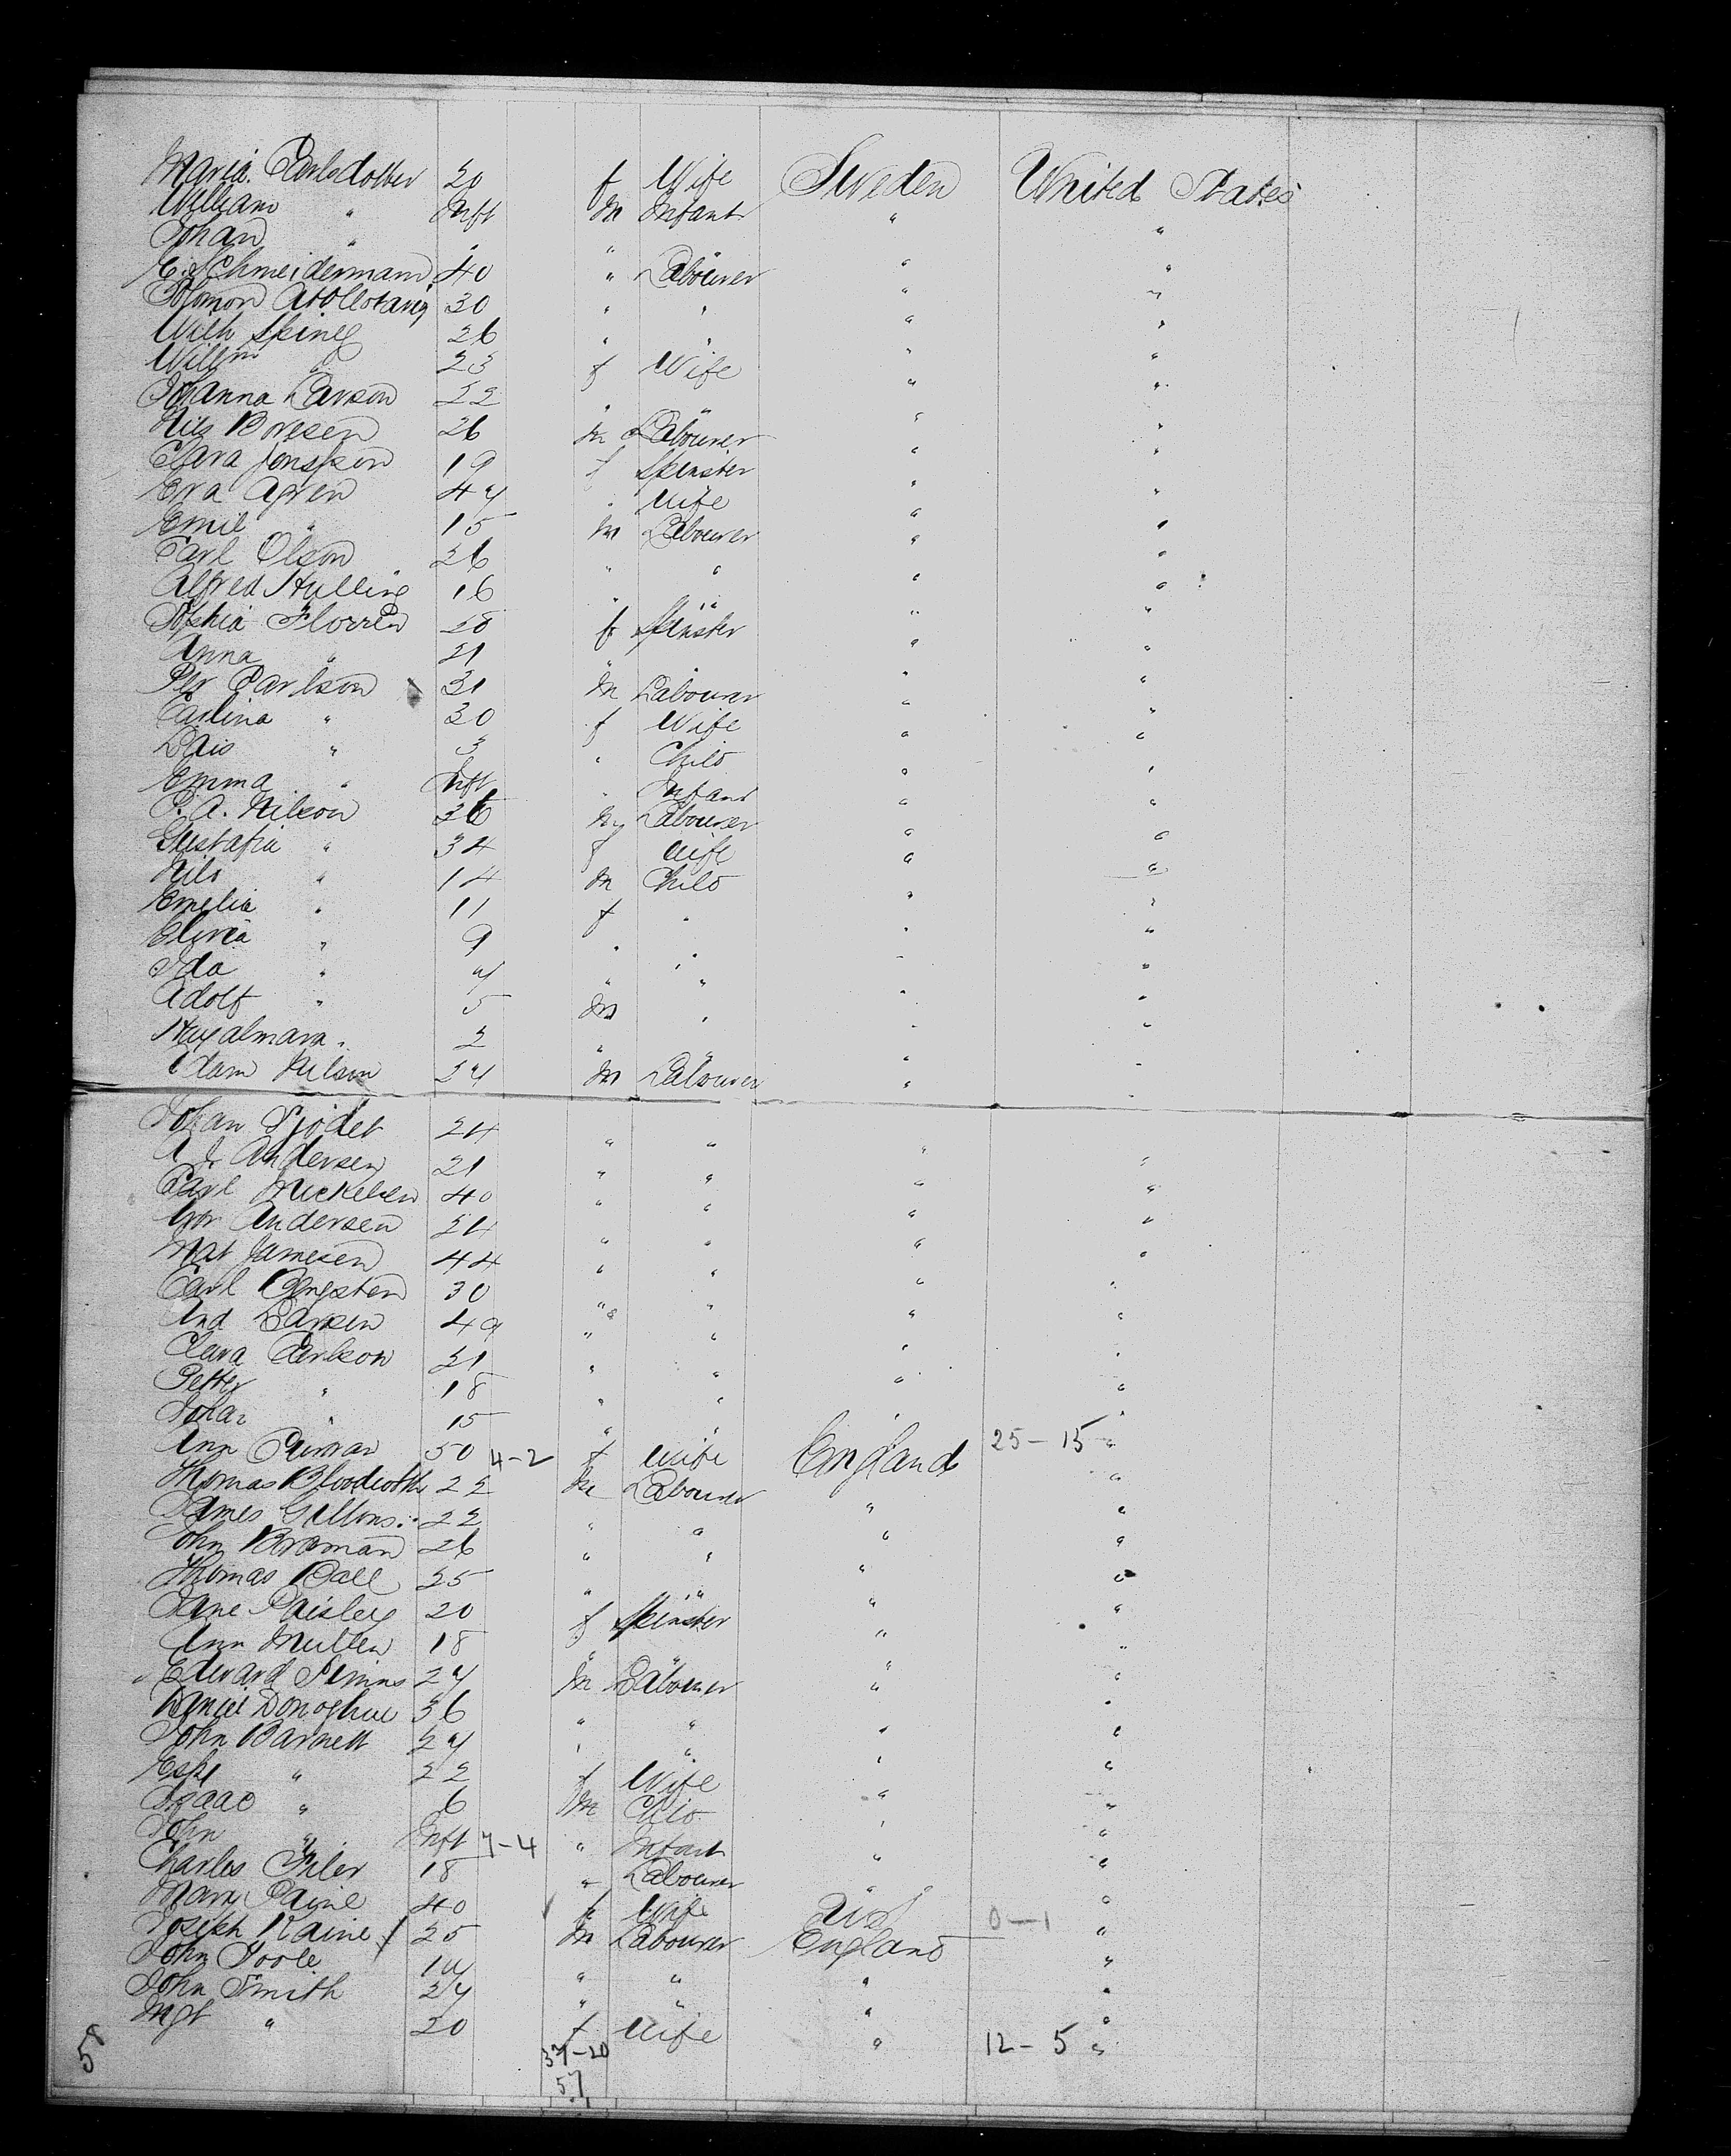 Maria Carlsdotter 20 f Wife Sweden United States
William " Inft M Infant " "
Johan " " " " " "
E. Schmeidermann 40 " Labourer " "
Solomon 30 " " " "
Wilh Spineg 26 " " " "
Willm " 23 f Wife " "
Johanna Larson 22 " " " "
Nils Boresen 26 M Labourer " "
Clara Jonsson 19 f Spinster " "
Eva Agren 47 " Wife " "
Emil " 15 M Labourer " "
Carl Olson 26 " " " "
Alfred Hulling 16 " " " "
Sophia Florren 28 f Spinster " "
Anna " 21 " " " "
Per Carlson 31 M Labourer " "
Carlina " 30 f Wife " "
Lais " 3 " Child " "
Emma " Inft " Infant " "
P. A. Nilson 36 M Labourer " "
Gustafia " 34 f Wife " "
Nils " 14 M Child " "
Emelia " 11 f " " "
Elivia " 9 " " " "
Ida " 7 " " " "
Adolf " 5 M " " "
Huyalmara " 2 " " " "
Adam Nilson 27 M Labourer " "
Johan Sjodet 24 " " " "
A J Andersen 21 " " " "
Carl Mickelsen 40 " " " "
And Andersen 24 " " " "
Mat Jamesen 44 " " " "
Carl Bengsten 30 " " " "
And Larsen 49 " " " "
Clara Carlson 21 " " " "
Petter " 18 " " " "
Johan " 15 " " " "
Ann 50 4-2 f Wife England 25-15 "
Thomas Bloodworth 22 M Labourer " "
James Gillons 22 " " " "
John Broman 26 " " " "
Thomas Ball 25 " " " "
Jane Paisley 20 f Spinster " "
Ann Mullen 18 " " " "
Edward Simms 27 M Labourer " "
Daniel Donoghue 36 " " " "
John Barnett 27 " " " "
Esther " 22 f Wife " "
Isaac " 6 M Child " "
John " Inft 7-4 " Infant " "
Charles Filer 18 " Labourer " "
Mary Paine 40 f Wife "
Joseph Raine 25 M Labourer England 0-1 "
John Poole 17 " " " "
John Smith 27 " " " "
Mgt " 20 f Wife " 12-5 "
58 37-20
57